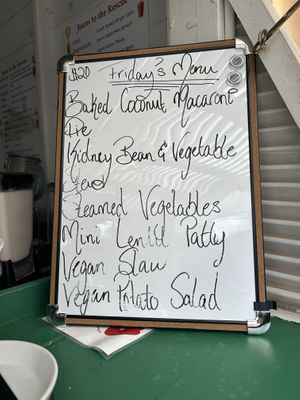 Juices to the Rescue
$20 Friday's Menu
Baked Coconut Macaroni
Pie
Kidney Bean & Vegetable
Stew
Steamed Vegetables
Mini Lentil Patty
Vegan Slaw
Vegan Potato Salad